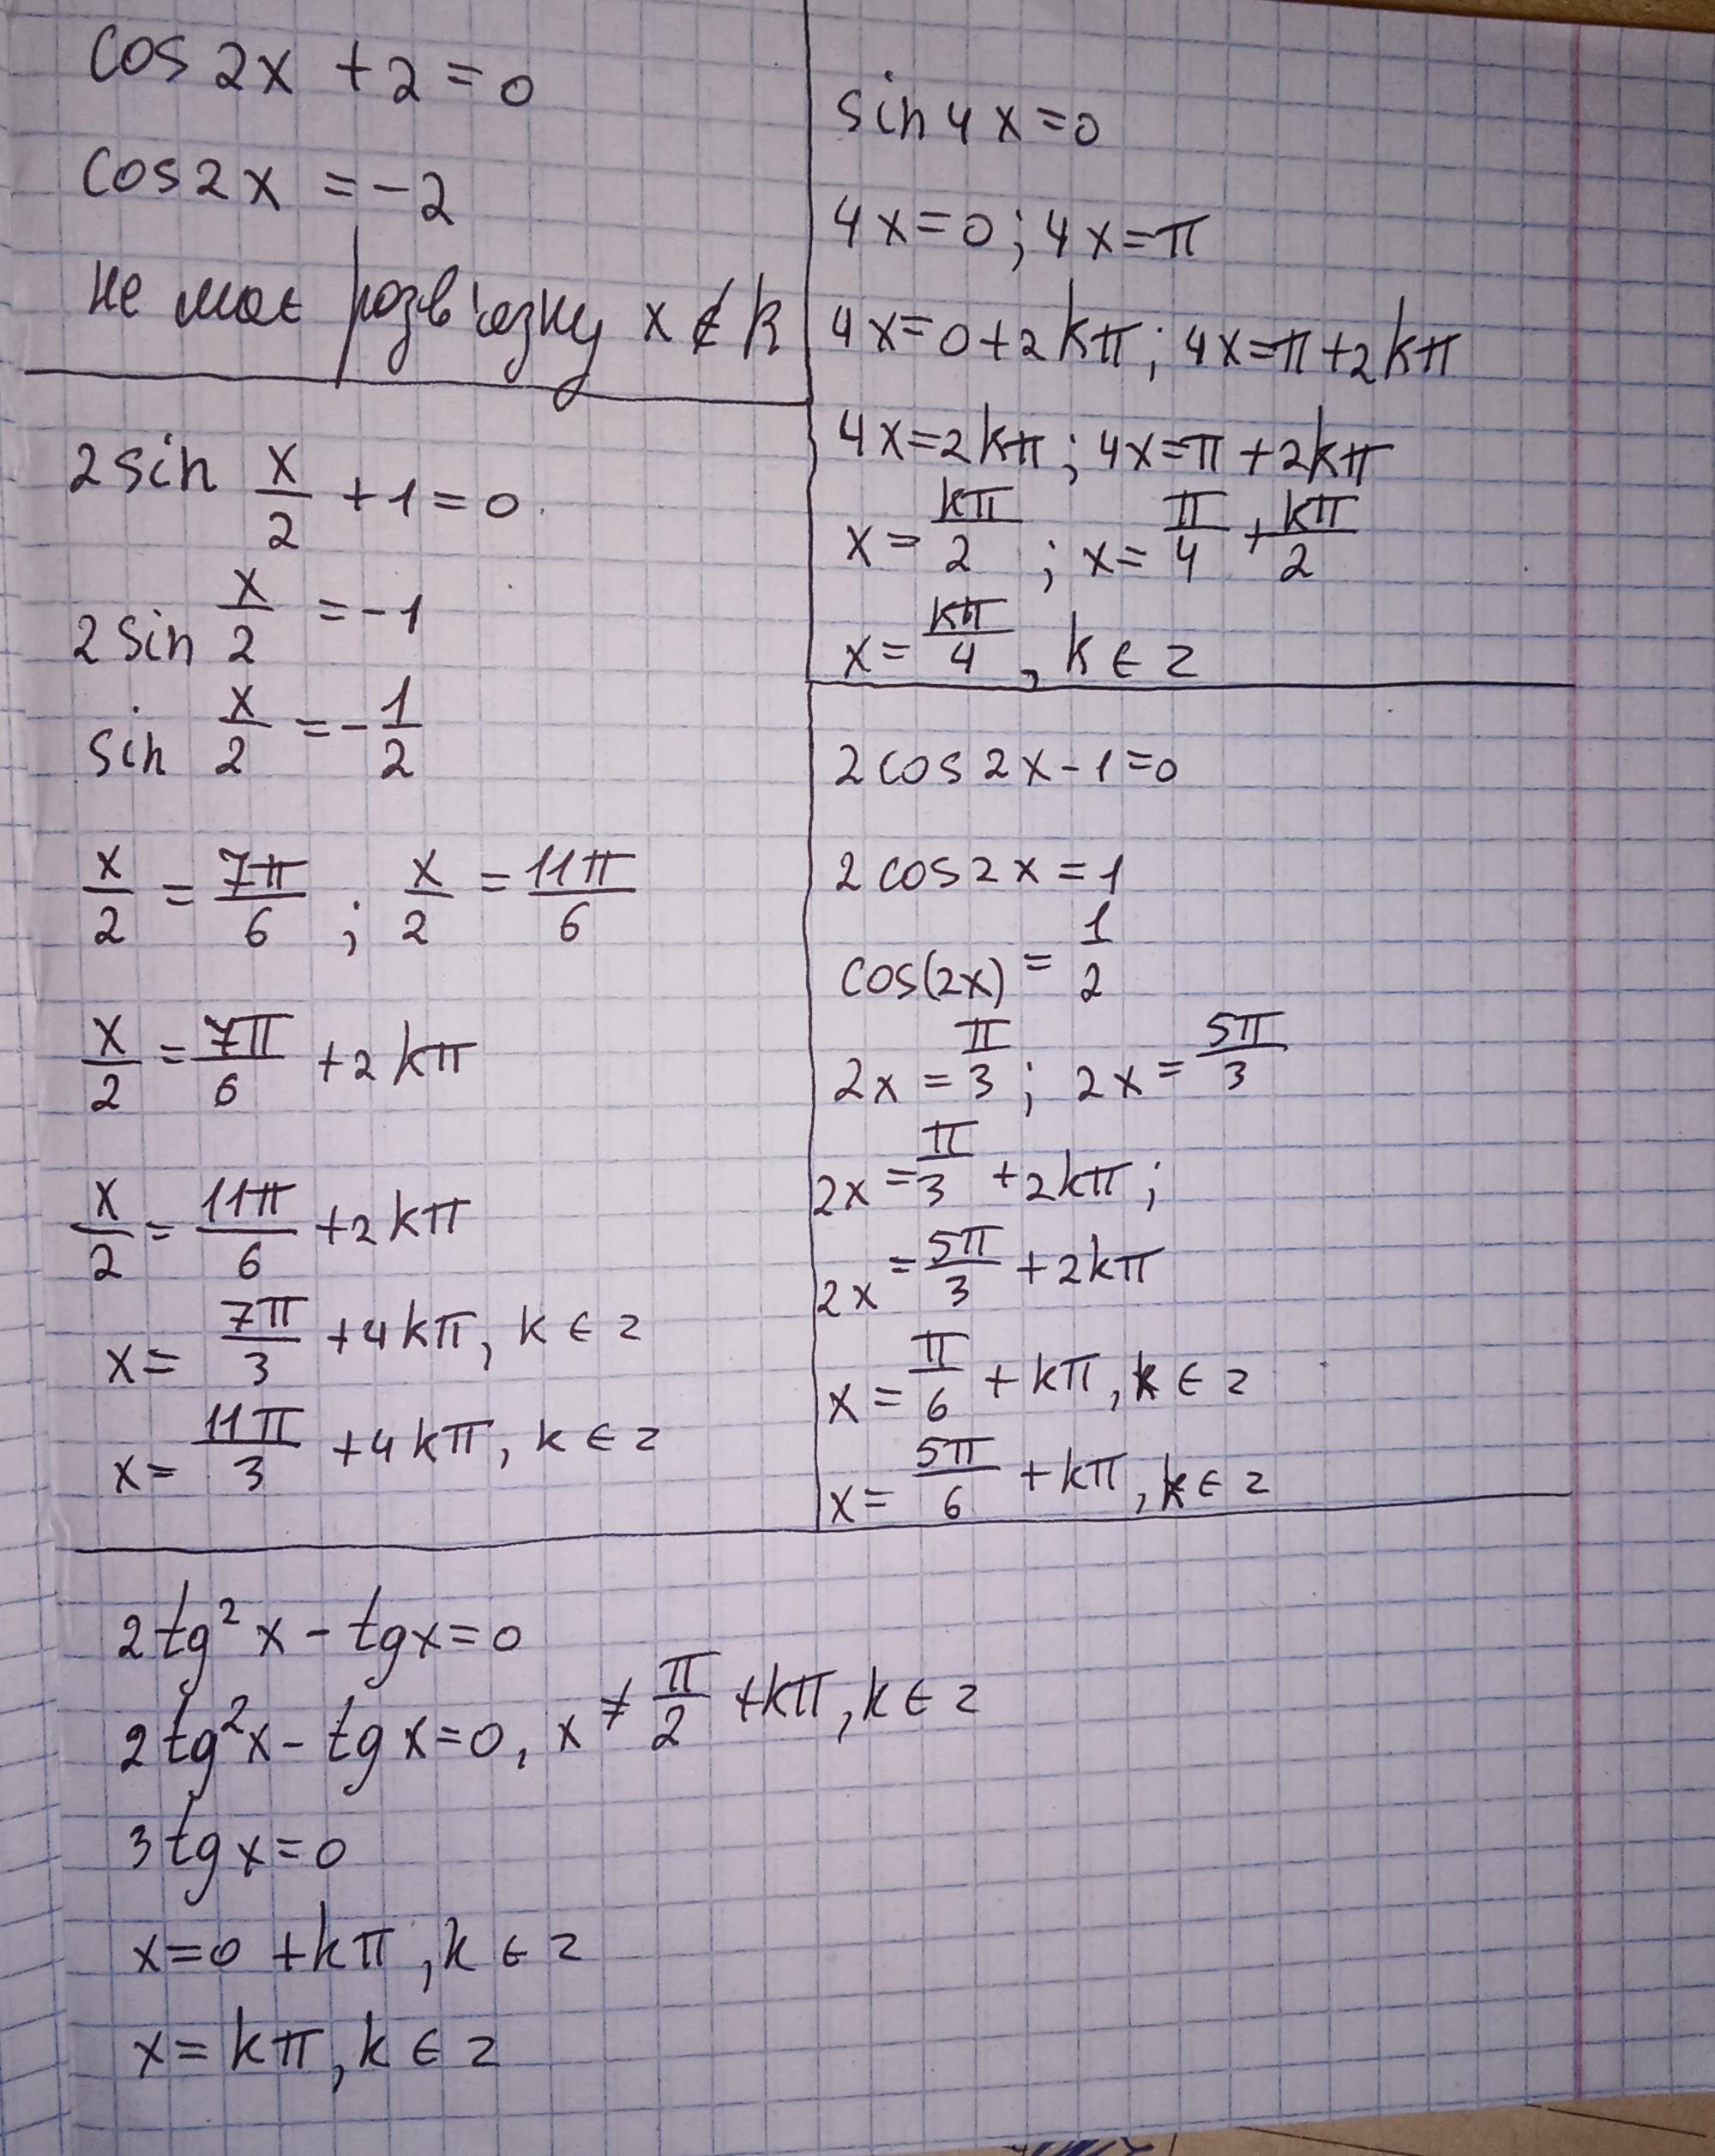 cos 2x + 2 = 0
cos 2x = -2
не має розв'язку x ∉ R
2 sin x/2 + 1 = 0
2 sin x/2 = -1
sin x/2 = -1/2
x/2 = 7π/6 ; x/2 = 11π/6
x/2 = 7π/6 + 2kπ
x/2 = 11π/6 + 2kπ
x = 7π/3 + 4kπ, k ∈ z
x = 11π/3 + 4kπ, k ∈ z
sin 4x = 0
4x = 0 ; 4x = π
4x = 0 + 2kπ ; 4x = π + 2kπ
4x = 2kπ ; 4x = π + 2kπ
x = kπ/2 ; x = π/4 + kπ/2
x = kπ/4 , k ∈ z
2 cos 2x - 1 = 0
2 cos 2x = 1
cos(2x) = 1/2
2x = π/3 ; 2x = 5π/3
2x = π/3 + 2kπ ;
2x = 5π/3 + 2kπ
x = π/6 + kπ, k ∈ z
x = 5π/6 + kπ, k ∈ z
2 tg² x - tg x = 0
2 tg² x - tg x = 0, x ≠ π/2 + kπ, k ∈ z
3 tg x = 0
x = 0 + kπ, k ∈ z
x = kπ, k ∈ z